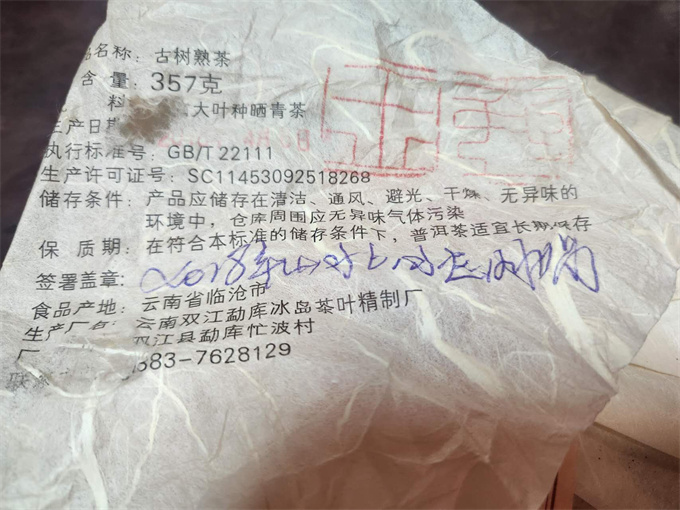 品名称：古树熟茶
含量：357克
料 大叶种晒青茶
生产日期
执行标准号：GB/T 22111
生产许可证号：SC11453092518268
储存条件：产品应储存在清洁、通风、避光、干燥、无异味的
环境中，仓库周围应无异味气体污染
保 质 期：在符合本标准的储存条件下，普洱茶适宜长期保存
签署盖章：2018年
食品产地：云南省临沧市
生产厂 云南双江勐库冰岛茶叶精制厂
厂 双江县勐库忙波村
联 883-7628129